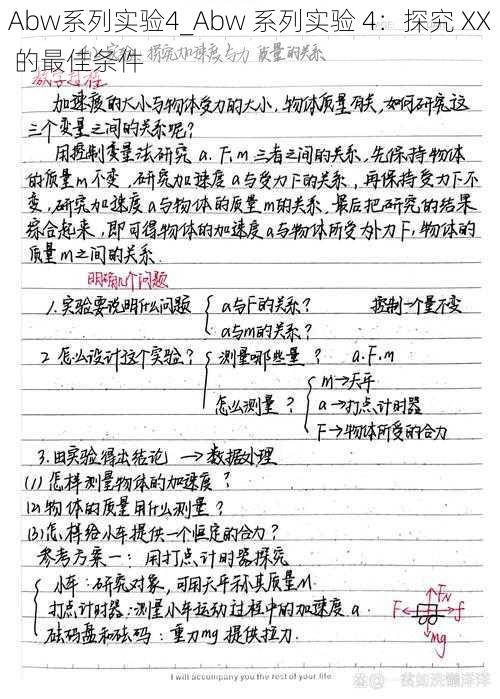 Abw系列实验4_Abw 系列实验 4：探究 XX
的最佳条件
实验：探究加速度与力 质量的关系
教学过程
加速度的大小与物体受力的大小，物体质量有关，如何研究这
三个变量之间的关系呢？
用控制变量法研究 a. F. m 三者之间的关系，先保持物体
的质量m不变，研究加速度a与受力F的关系，再保持受力F不
变，研究加速度a与物体的质量m的关系，最后把研究的结果
综合起来，即可得物体的加速度a与物体所受外力F，物体的
质量m之间的关系.
明确几个问题
1. 实验要说明什么问题 { a与F的关系？ 控制一个量不变
a与m的关系？
2 怎么设计这个实验？ { 测量哪些量？ a.F.m
怎么测量？ { m→天平
a→打点计时器
F→物体所受的合力
3.由实验得出结论 → 数据处理
(1) 怎样测量物体的加速度？
(2) 物体的质量用什么测量？
(3) 怎样给小车提供一个恒定的合力？
参考方案一：用打点计时器探究
{ 小车：研究对象，可用天平称其质量M.
打点计时器：测量小车运动过程中的加速度 a.
砝码盘和砝码：重力mg 提供拉力.
FN
F f
mg
I will accompany you the rest of your life.